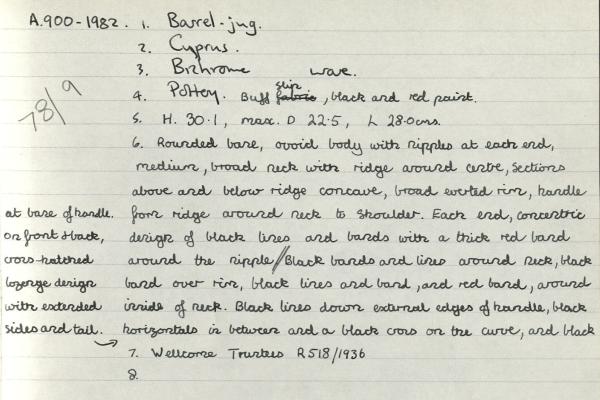 A.900-1982. 1. Barrel-jug.
2. Cyprus.
3. Bichrome ware.
78/9
slip
4. Pottery. Buff fabric, black and red paint.
5. H. 30.1, max. D 22.5, L 28.0cms.
6. Rounded base, ovoid body with nipples at each end,
medium, broad neck with ridge around centre, sections
above and below ridge concave, broad everted rim, handle
from ridge around neck to shoulder. Each end, concentric
design of black lines and bands with a thick red band
around the nipple // Black bands and lines around neck, black
band over rim, black lines and band, and red band, around
inside of neck. Black lines down external edges of handle, black
horizontals in between and a black cross on the curve, and black
at base of handle.
on front & back,
cross-hatched
lozenge design
with extended
sides and tail.
7. Wellcome Trustees R518/1936
8.